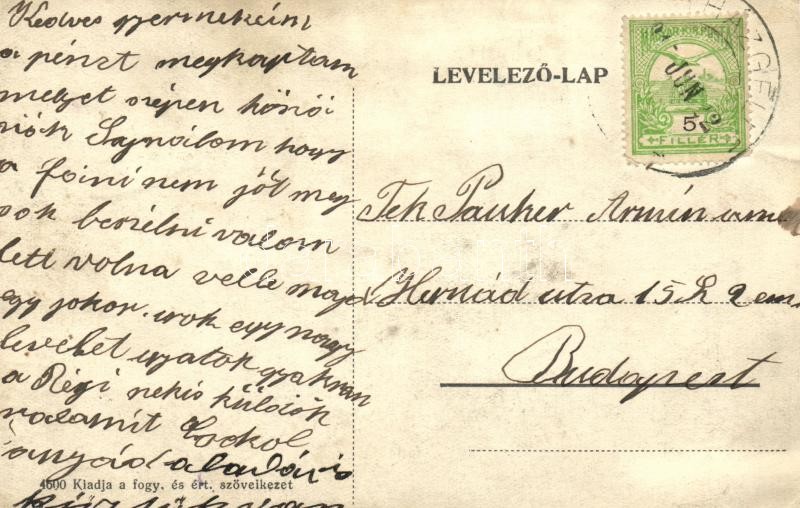 Kedves gyermekeim
a pénzt megkaptam
melyet szépen köszö
niök Sajnálom hogy
a foini nem jöt meg
sok beszélni valom
lett volna velle majd
egy jokor. irok egy nagy
levelet irjatok gyakran
a Régi nekis küldök
valamit Csokol
anyád aladár is
LEVELEZŐ-LAP
JUN
5
FILLÉR
Tek Pauker Ármin urnak
Hernád utza 15 2 em
Budapest
4600 Kiadja a fogy. és ért. szövetkezet